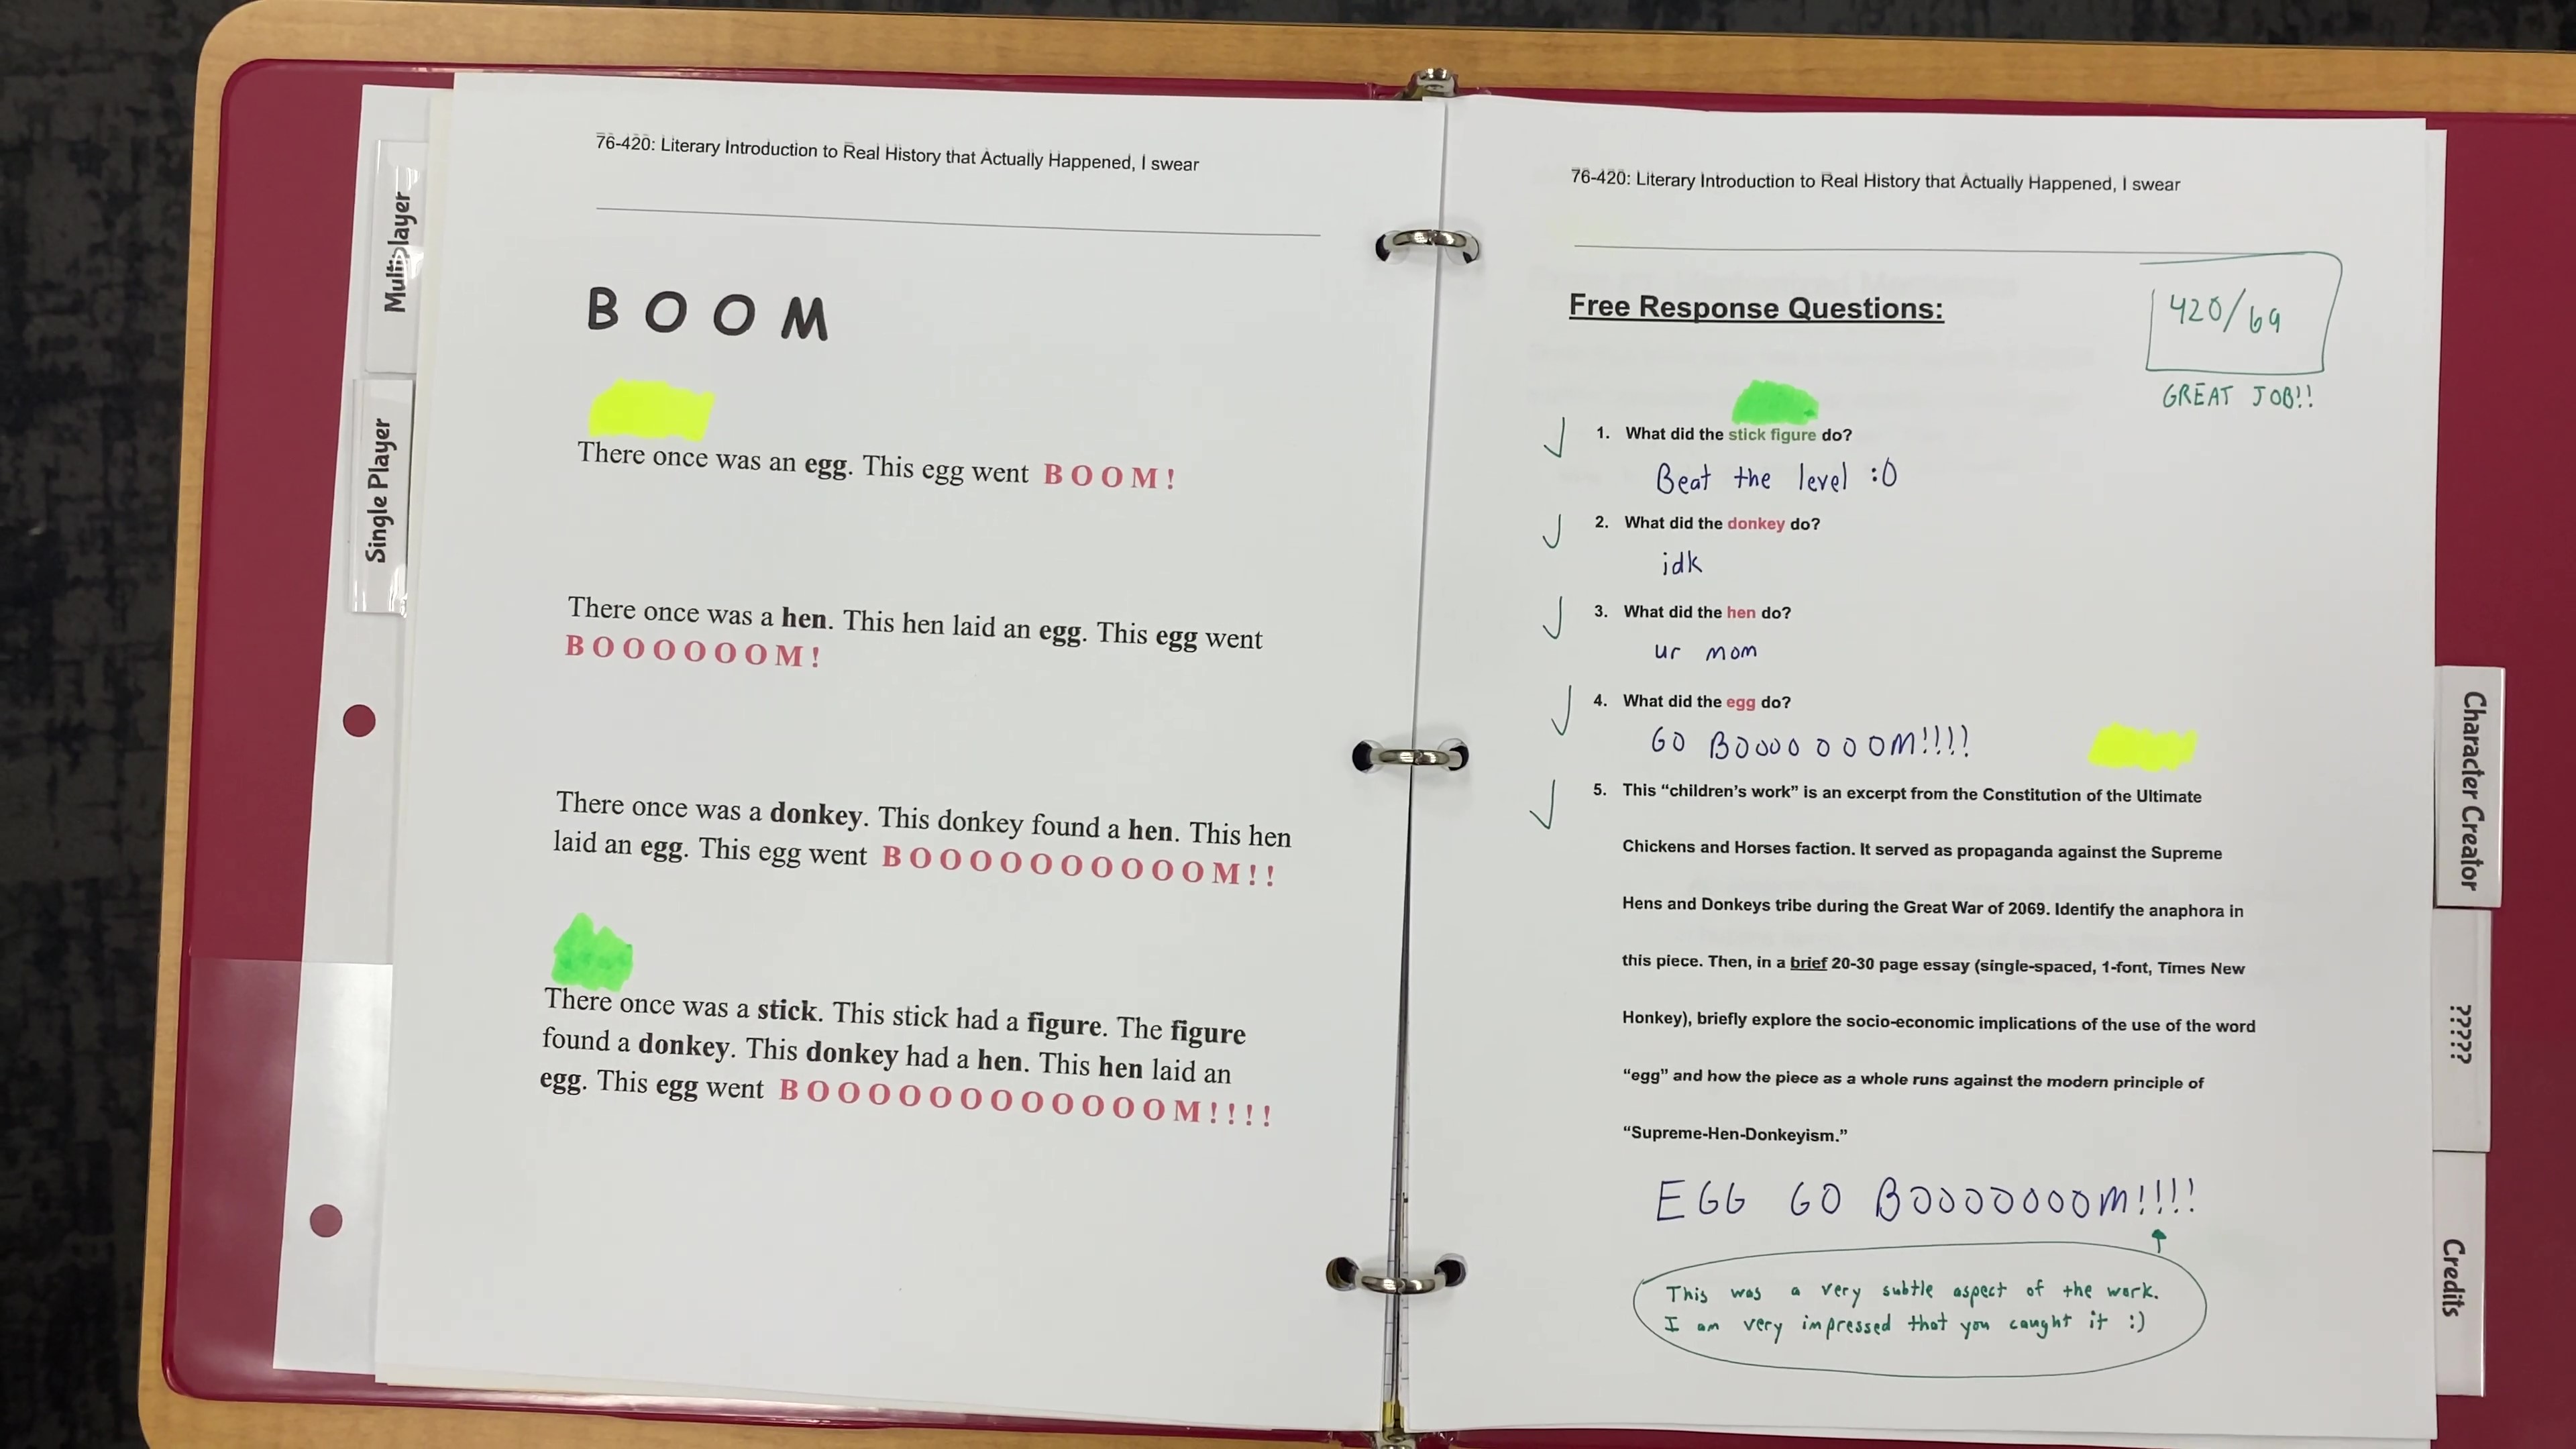 Multiplayer
Single Player
76-420: Literary Introduction to Real History that Actually Happened, I swear
B O O M
There once was an egg. This egg went B O O M !
There once was a hen. This hen laid an egg. This egg went
B O O O O O O M !
There once was a donkey. This donkey found a hen. This hen
laid an egg. This egg went B O O O O O O O O O O M ! !
There once was a stick. This stick had a figure. The figure
found a donkey. This donkey had a hen. This hen laid an
egg. This egg went B O O O O O O O O O O O O M ! ! ! !
76-420: Literary Introduction to Real History that Actually Happened, I swear
Free Response Questions:
420/69
GREAT JOB!!
1. What did the stick figure do?
Beat the level :O
2. What did the donkey do?
idk
3. What did the hen do?
ur mom
4. What did the egg do?
GO BOOOOOOOM!!!!
5. This “children’s work” is an excerpt from the Constitution of the Ultimate
Chickens and Horses faction. It served as propaganda against the Supreme
Hens and Donkeys tribe during the Great War of 2069. Identify the anaphora in
this piece. Then, in a brief 20-30 page essay (single-spaced, 1-font, Times New
Honkey), briefly explore the socio-economic implications of the use of the word
“egg” and how the piece as a whole runs against the modern principle of
“Supreme-Hen-Donkeyism.”
EGG GO BOOOOOOOM!!!!
This was a very subtle aspect of the work.
I am very impressed that you caught it :)
Character Creator
?????
Credits